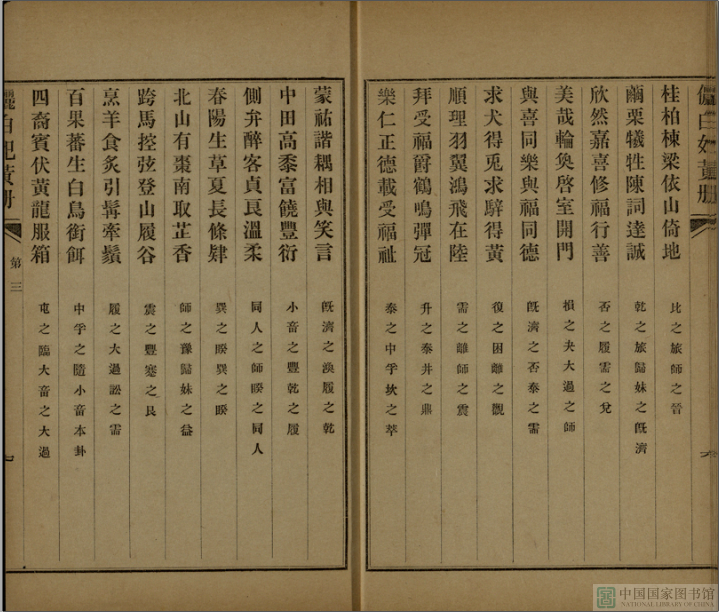 儷白妃黃册
桂柏棟梁依山倚地 比之旅師之晉
繭栗犧牲陳詞達誠 乾之旅歸妹之旣濟
欣然嘉喜修福行善 否之履需之兌
美哉輪奐啓室開門 損之夬大過之師
與喜同樂與福同德 旣濟之否泰之需
求犬得兎求騂得黃 復之困離之觀
順理羽翼鴻飛在陸 需之離師之震
拜受福爵鶴鳴彈冠 升之泰井之鼎
樂仁正德載受福祉 泰之中孚坎之萃
蒙祐諧耦相與笑言 旣濟之渙履之乾
中田高黍富饒豐衍 小畜之豐乾之履
側弁醉客貞良溫柔 同人之師睽之同人
春陽生草夏長條肄 巽之睽巽之睽
北山有棗南取芷香 師之豫歸妹之益
跨馬控弦登山履谷 震之豐蹇之艮
烹羊食炙引髯牽鬚 履之大過訟之需
百果蕃生白鳥銜餌 中孚之隨小畜本卦
四裔賓伏黃龍服箱 屯之臨大畜之大過
儷白妃黃册 第三 七
中国国家图书馆
NATIONAL LIBRARY OF CHINA